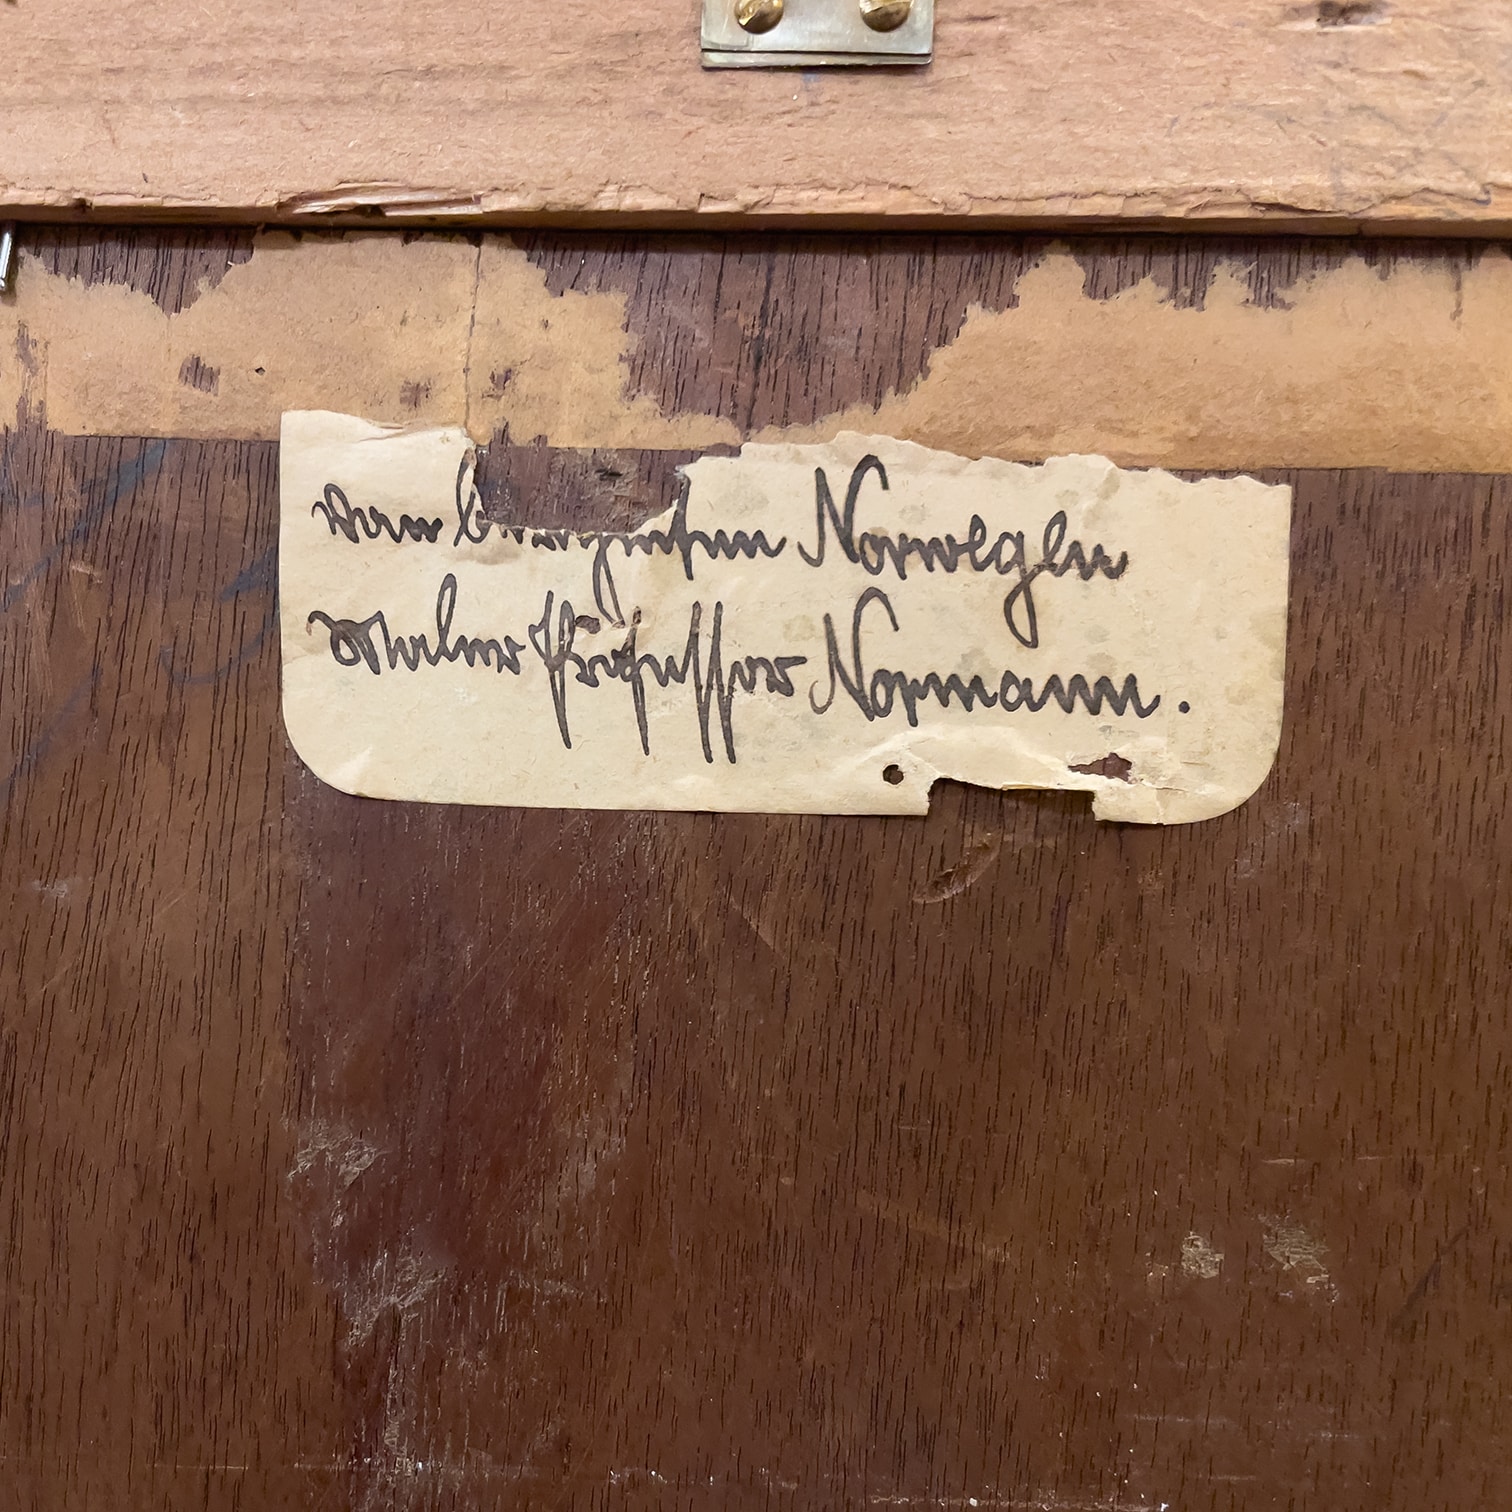 Vom berühmten Norwegen
Maler Professor Normann.